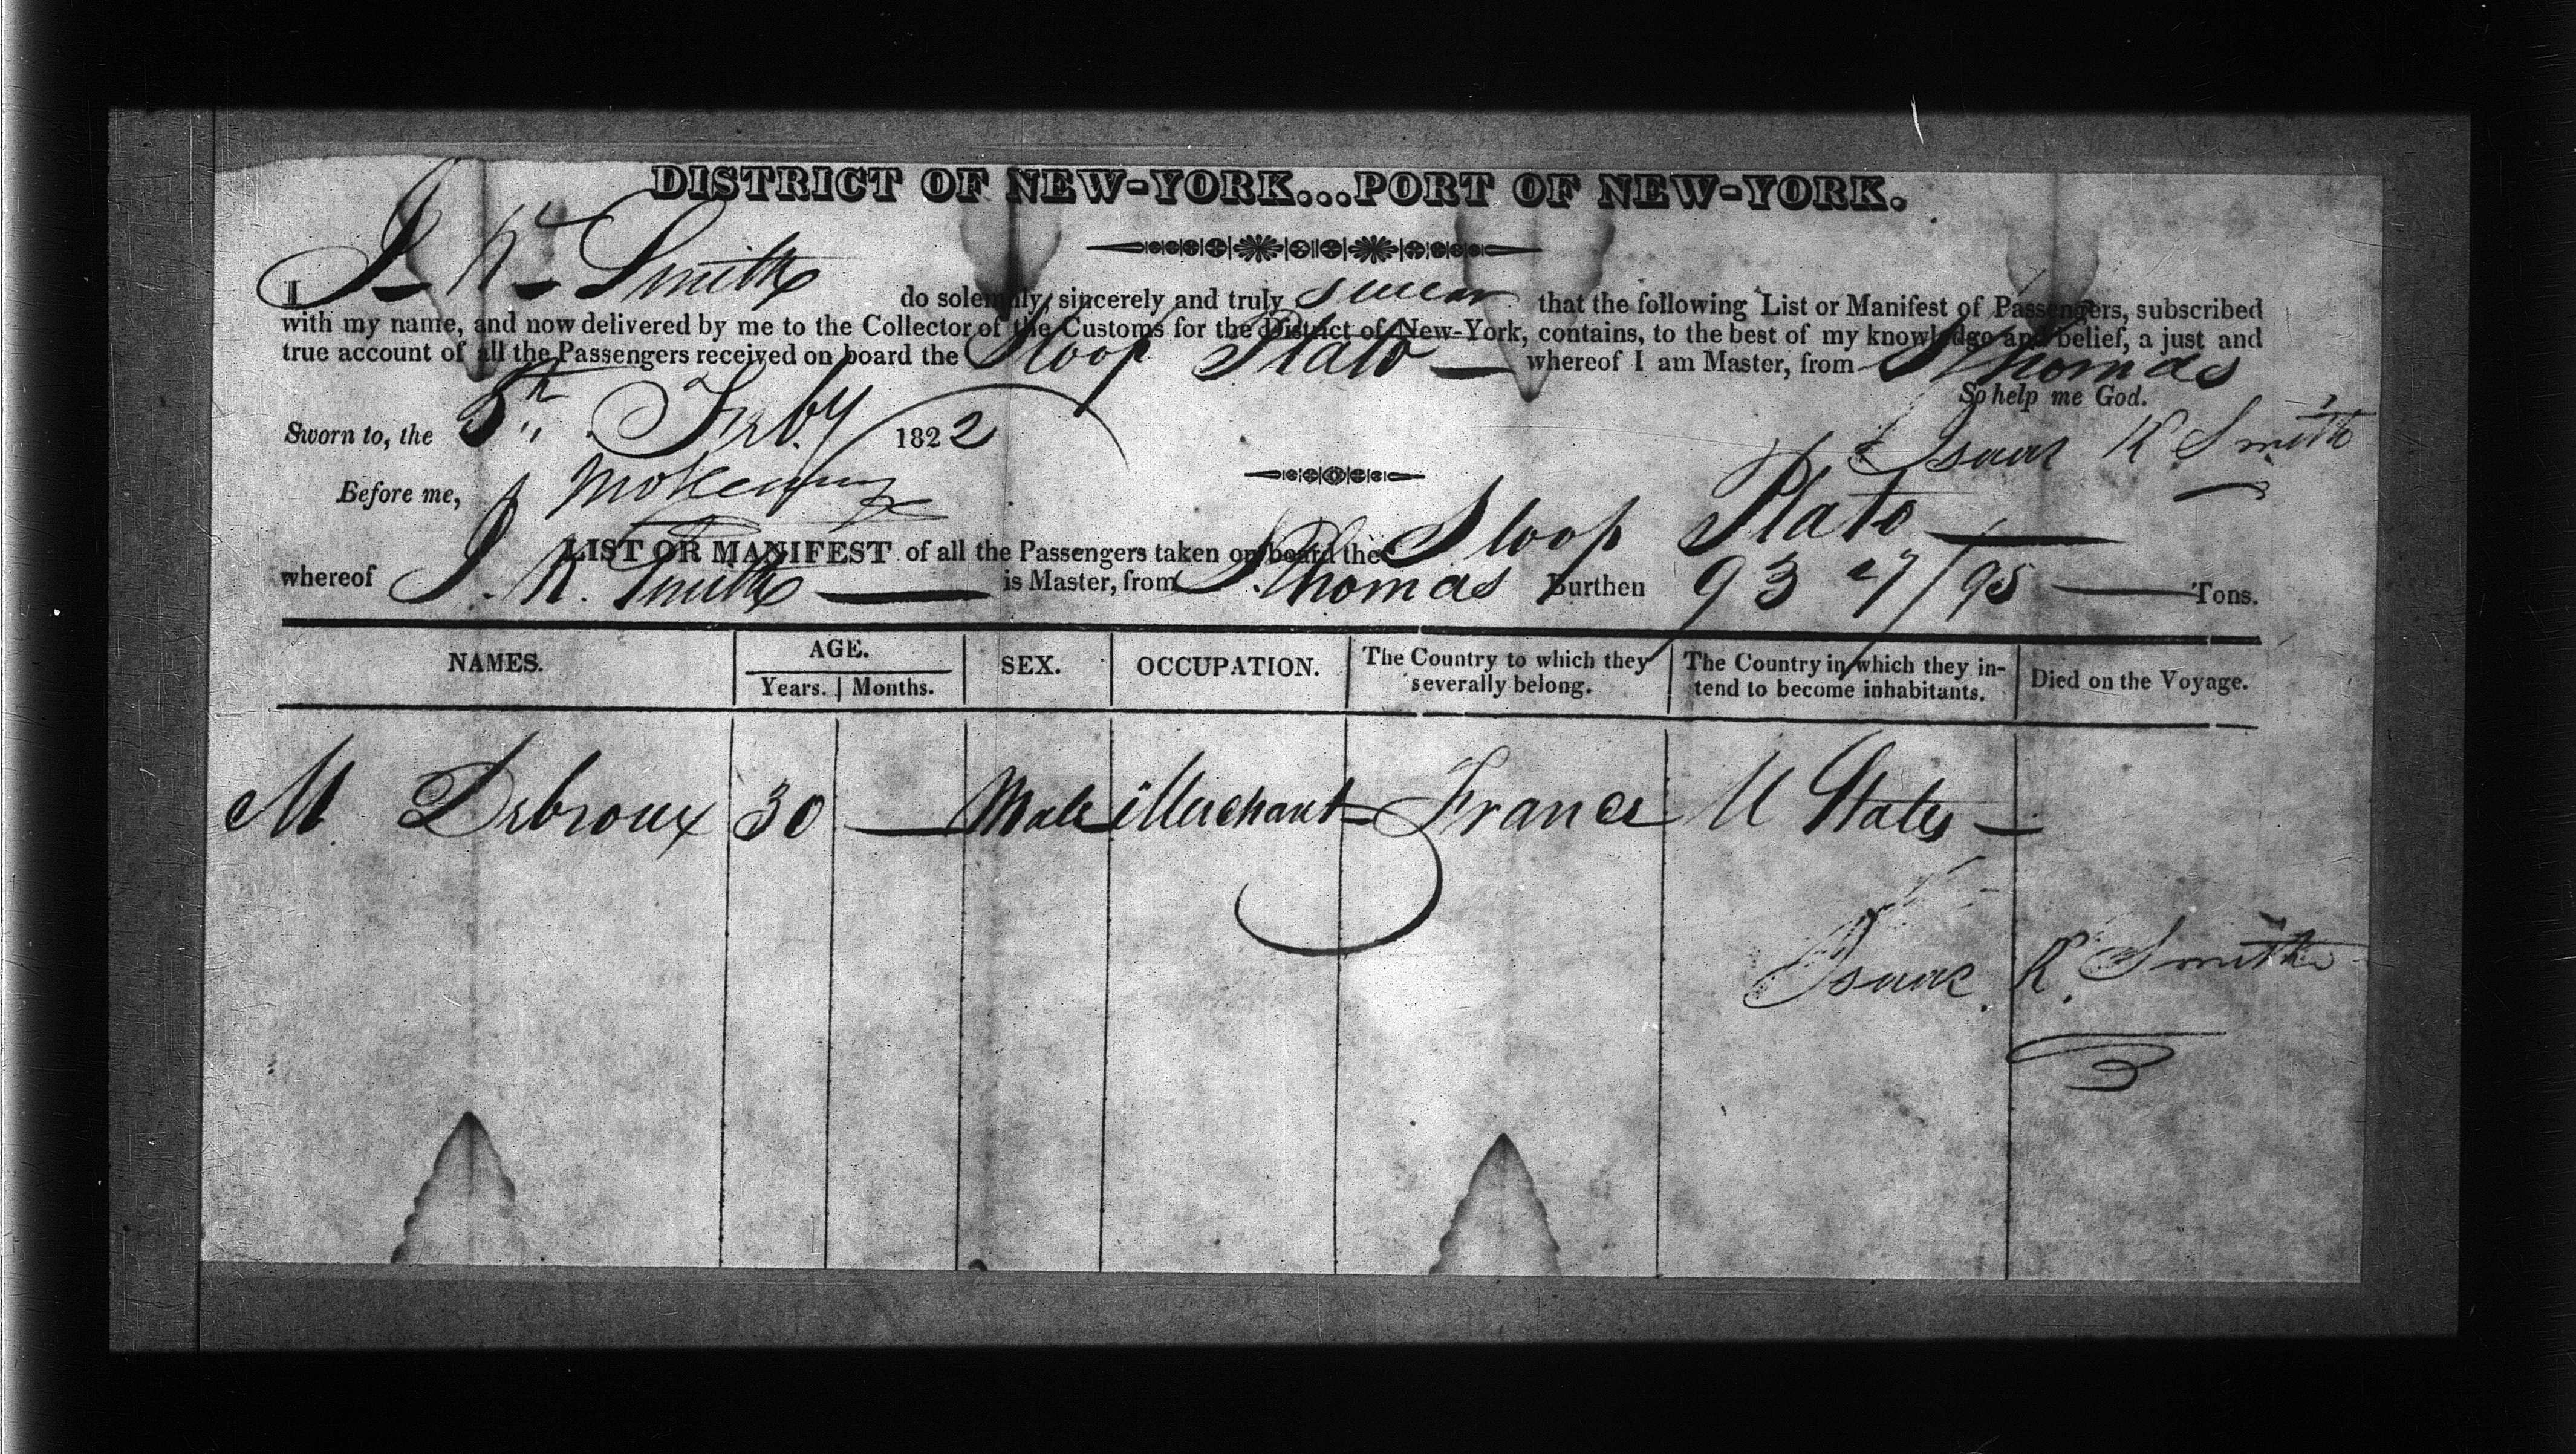 DISTRICT OF NEW-YORK...PORT OF NEW-YORK.
I I. R. Smith do solemnly, sincerely and truly swear that the following List or Manifest of Passengers, subscribed
with my name, and now delivered by me to the Collector of the Customs for the District of New-York, contains, to the best of my knowledge and belief, a just and
true account of all the Passengers received on board the Sloop Plato whereof I am Master, from St Thomas
So help me God.
Sworn to, the 5th Feby 1822
Isaac R Smith
Before me,
LIST OR MANIFEST of all the Passengers taken on board the Sloop Plato
whereof I. R. Smith is Master, from St Thomas Burthen 93 27/95 Tons.
NAMES. AGE. SEX. OCCUPATION. The Country to which they severally belong. The Country in which they intend to become inhabitants. Died on the Voyage.
Years. Months.
M. Debroux 30 — Male Merchant France U States —
Isaac R. Smith